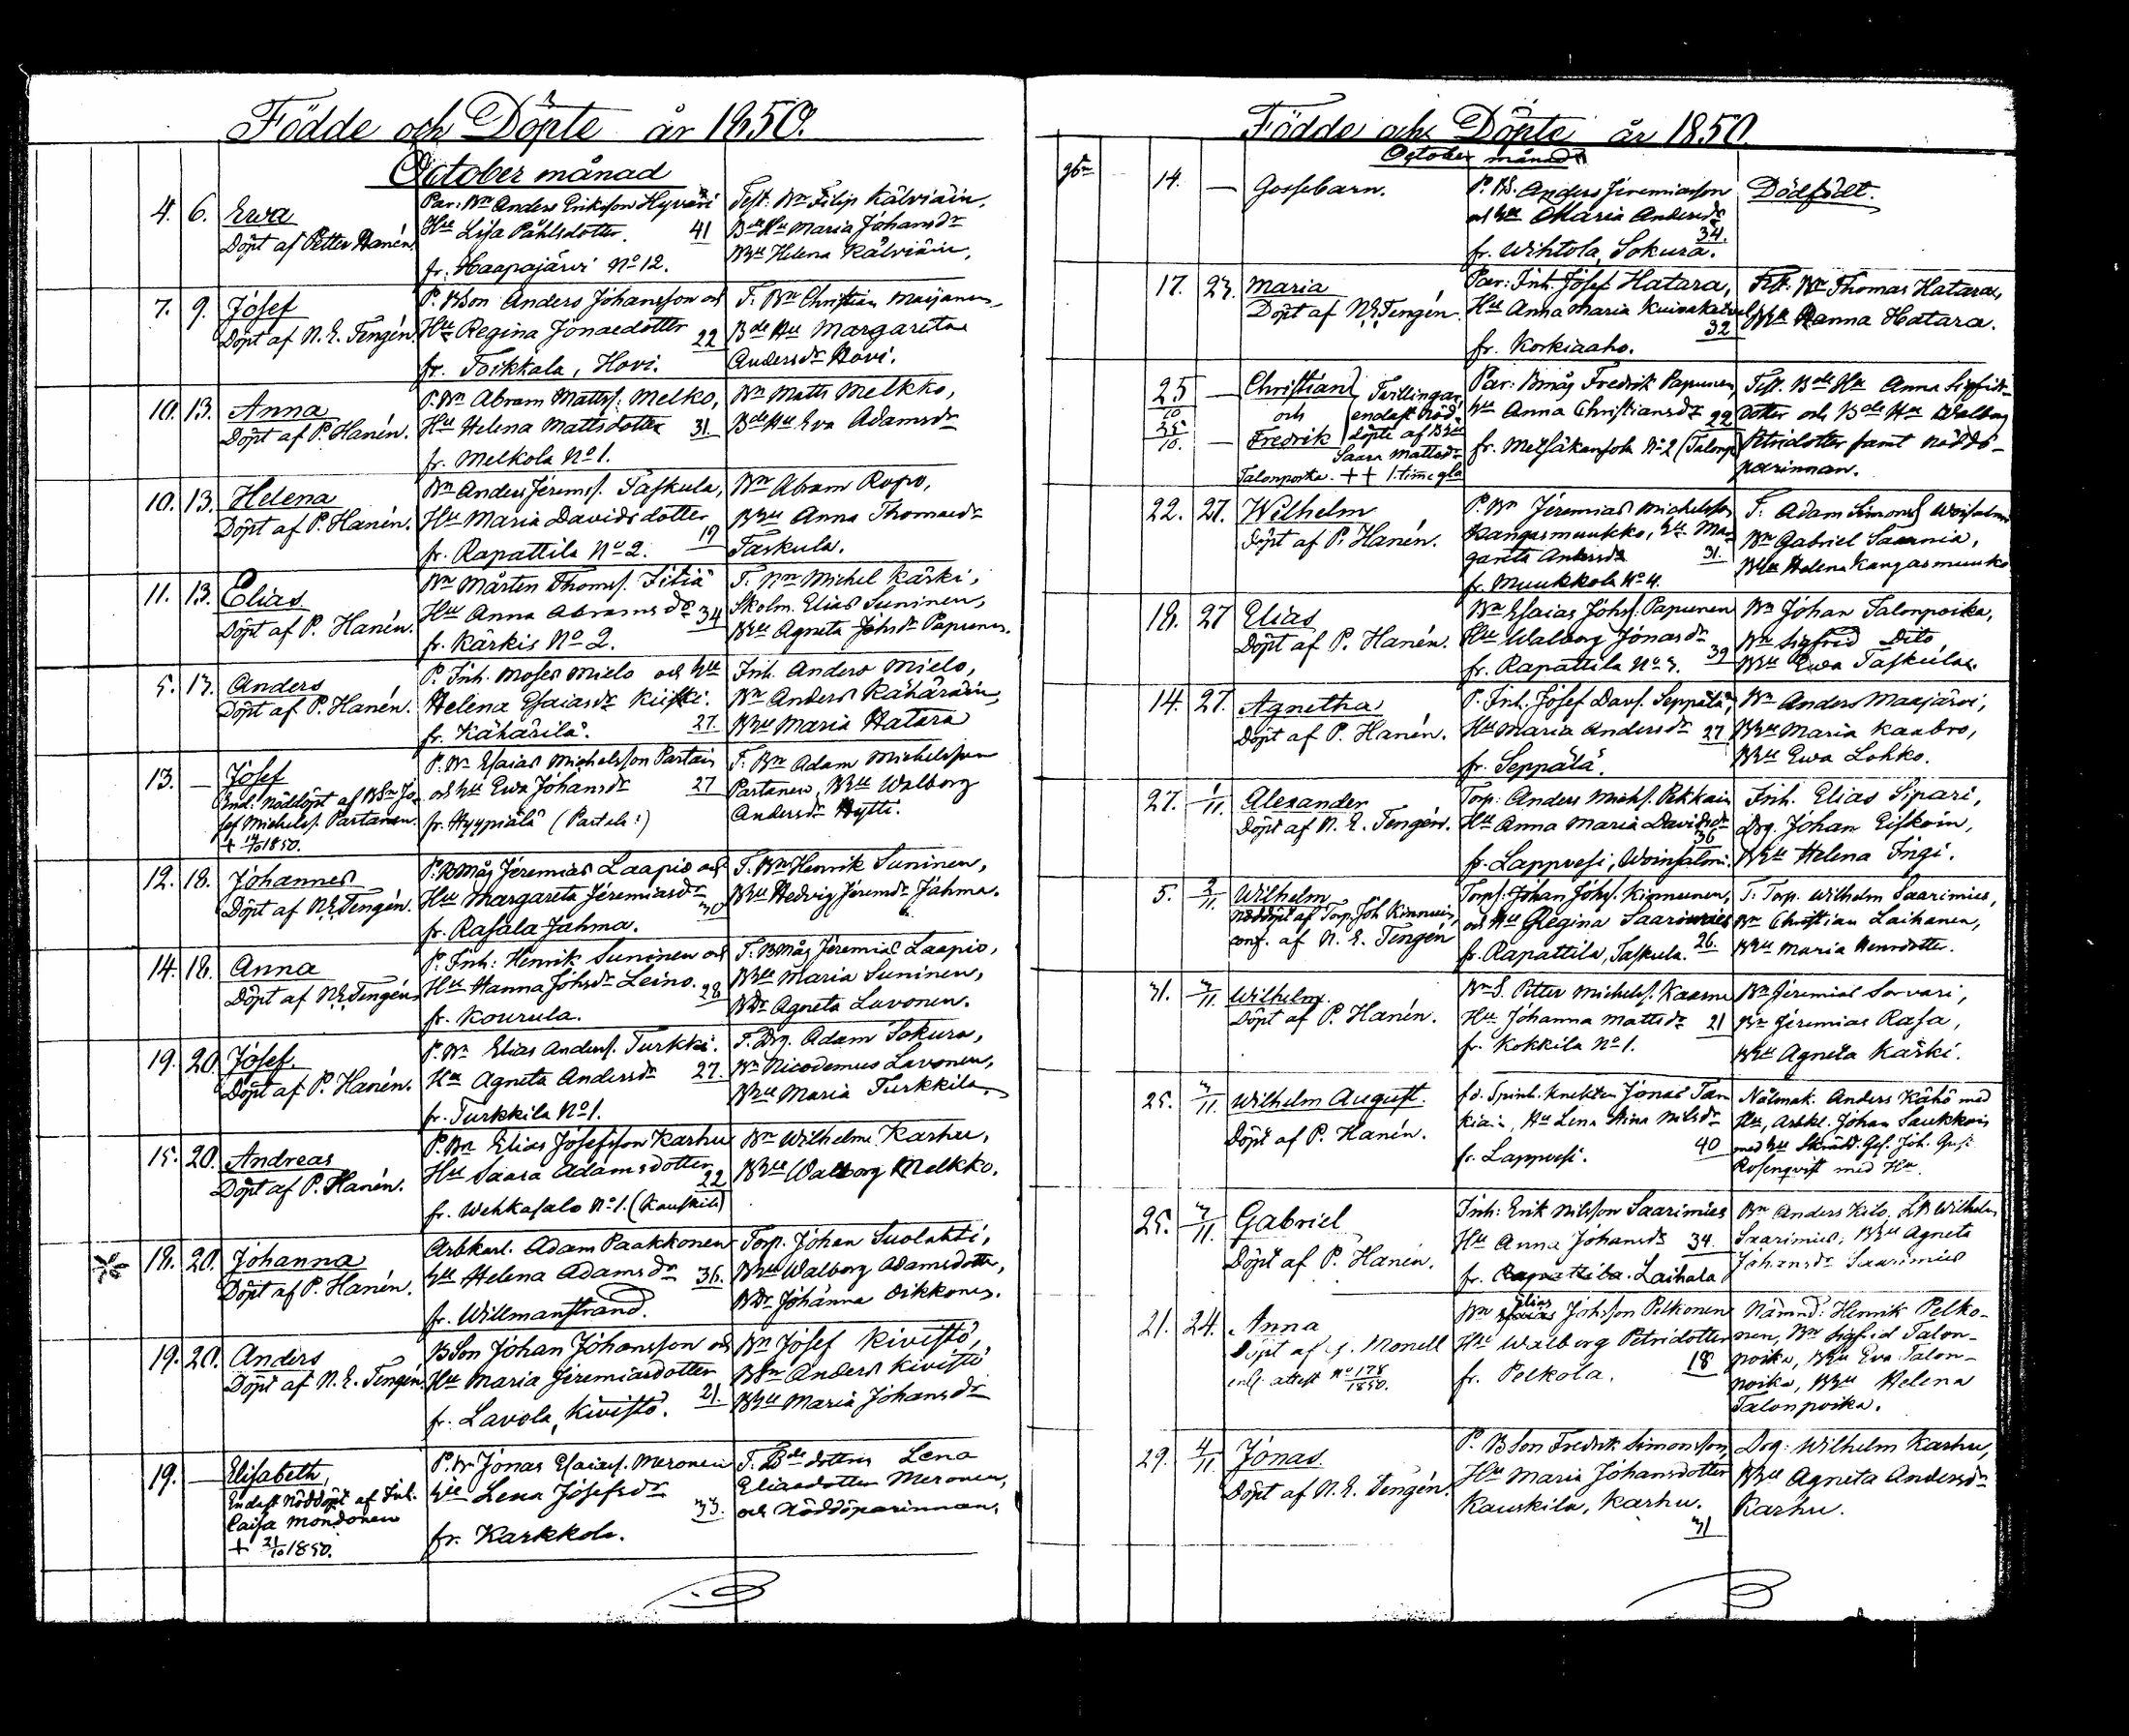 Födde och Döpte år 1850.
October månad
4. 6. Ewa
Döpt af Petter Hanén.
Par: Bn Anders Eriksson Hyväri
Hu Lisa Påhlsdotter. 41
fr. Haapajärvi No 12.
Test. Bn Filip Kälviäin,
Bde Hu Maria Johansdr
BHu Helena Kälviäin,
7. 9. Josef
Döpt af N. E. Tengén.
P. BSon Anders Johansson och
Hu Regina Jonaedotter 22
fr. Toikkala, Hovi.
T. Bn Christian Maijanen
Bde Hu Margareta
Andersdr Hovi.
10. 13. Anna
Döpt af P. Hanén.
P. Bn Abram Mattss. Melko,
Hu Helena Mattsdotter 31.
fr. Melkola No 1.
Bn Matts Melkko,
Bde Hu Eva Adamsdr
10. 13. Helena
Döpt af P. Hanén.
Bn Anders Jeremss. Taskula,
Hu Maria Davidsdotter
fr. Rapattila No 2. 19
Bn Abram Ropo,
BHu Anna Thomaedr
Taskula.
11. 13. Elias
Döpt af P. Hanén.
Bn Mårten Thomss. Iitiä
Hu Anna Abramsdr 34
fr. Kärkis No 2.
T. Bn Michel Kärki,
Skolm. Elias Suninen,
BHu Agneta Johsdr Papunen.
5. 13. Anders
Döpt af P. Hanén.
P. Inh. Moses Mielo och Hu
Helena Esaiasdr Kiiski.
fr. Kähärilä. 27.
Inh. Anders Mielo,
Bn Anders Kähäräin,
BHu Maria Hatara
13. — Josef
End. Nöddöpt af BSn Jo-
sef Michelss. Partanen.
+ 14/10 1850.
P. Bn Esaias Michelsson Partain
och Hu Ewa Johansdr 27
fr. Hyypiälä (Partala:)
T. Bn Adam Michelsson
Partanen, BHu Walborg
Andersdr Hytti.
12. 18. Johannes
Döpt af N. E. Tengén.
P. BMåg Jeremias Laapio och
Hu Margareta Jeremiasdr 30
fr. Rasala Jahma.
T. Bn Henrik Suninen,
BHu Hedvig Jeremdr Jahma.
14. 18. Anna
Döpt af N. E. Tengén
P. Inh: Henrik Suninen och
Hu Hanna Johsdr Leino. 28
fr. Kourula.
T. BMåg Jeremias Laapio,
BHu Maria Suninen,
BDr Agneta Lavonen.
19. 20. Josef
Döpt af P. Hanén.
P. Bn Elias Anderss. Turkki.
Hu Agneta Andersdr 27.
fr. Turkkila No 1.
T. Drg. Adam Sokura,
Bn Nicodemus Lavonen,
BHu Maria Turkkila
15. 20. Andreas
Döpt af P. Hanén.
P. Bn Elias Josefsson Karhu
Hu Saara Adamsdotter 22
fr. Wehkasalo No 1. (Kauskila)
Bn Wilhelm Karhu,
BHu Walborg Melkko.
18. 20. Johanna
Döpt af P. Hanén.
Arbkarl. Adam Paakkonen
Hu Helena Adamsdr 36.
fr. Willmanstrand.
Torp. Johan Suolahti,
BHu Walborg Adamsdotter,
BDr Johanna Oikkonen.
19. 20. Anders
Döpt af N. E. Tengén
BSon Johan Johansson och
Hu Maria Jeremiasdotter
fr. Lavola, Kivistö. 21.
Bn Josef Kivistö,
BSn Anders Kivistö
BHu Maria Johansdr
19. — Elisabeth,
Endast nöddöpt af Inh.
Caisa Mondonen
+ 21/10 1850.
P. Bn Jonas Esaiass. Meronen
Hu Lena Josefsdr
fr. Karkkola. 33.
T. Bde dottern Lena
Eliasdotter Meronen,
och Nöddöparinnan.
Födde och Döpte år 1850.
October månad
14. — Gossebarn.
P. BS. Anders Jeremiasson
och Hu Maria Andersdr
34.
fr. Wihtola, Sokura.
Dödfödt.
17. 23. Maria
Döpt af N. E. Tengén.
Par: Inh. Josef Hatara,
Hu Anna Maria
32
fr. Korkiaaho.
Test. Bn Thomas Hatara,
BHu Hanna Hatara.
25/10 — Christian
och
25/10. — Fredrik
Tvillingar,
endast nöd-
döpte af BHu
Saara Mattsdr
Talonpoika. ++ 1. time gla
Par: Bmåg Fredrik Papunen,
Hu Anna Christiansdr 22
fr. Metsäkansola No 2 (Talonp
Test. Bde Hu Anna Sigfrids-
dotter och Bde Hu Walborg
Petridotter samt nöddö-
parinnan.
22. 27. Wilhelm
Döpt af P. Hanén.
P. Bn Jeremias Michelsson
Kangasmuukko, Hu Mar-
gareta Andersdr 31.
fr. Muukkola No 4.
T. Adam Simonss Woisalmi
Bn Gabriel Saarnia,
BHu Helena Kangasmuukko
18. 27 Elias
Döpt af P. Hanén.
Bn Esaias Johss. Papunen
Hu Walborg Jonasdr
fr. Rapattila No 3. 39
Bn Johan Talonpoika,
Bn Sigfrid Dito
BHu Ewa Taskula.
14. 27. Agnetha
Döpt af P. Hanén.
P. Inh. Josef Davs. Seppälä,
Hu Maria Andersdr 27
fr. Seppälä.
Bn Anders Maajärvi,
BHu Maria Kaabro,
BHu Ewa Lohko.
27. 1/11. Alexander
Döpt af N. E. Tengén.
Torp: Anders Michs. Pekkain
Hu Anna Maria Davidsdr
36
fr. Lappvesi, Woinsalmi.
Inh. Elias Sipari,
Drg. Johan Eiskoin,
BHu Helena Ingi.
5. 2/11. Wilhelm
Nöddöpt af Torp. Joh Kinnuin,
conf. af N. E. Tengén
Torps. Johan Johss. Kinnunen,
och Hu Regina Saarimies
fr. Rapattila, Taskula. 26.
T: Torp. Wilhelm Saarimies,
Bn Christian Laihanen,
BHu Maria Henrdotter.
31. 3/11. Wilhelm.
Döpt af P. Hanén.
BnS. Petter Michelss. Kaarna
Hu Johanna Mattsdr 21
fr. Kokkila No 1.
Bn Jeremias Sorvari,
Bn Jeremias Rasa,
BHu Agneta Kärki.
25. 3/11. Wilhelm August.
Döpt af P. Hanén.
fd. Spinh. Knekten Jonas Tan-
kiain, Hu Lena Stina Nilsdr
40
fr. Lappvesi.
Nålmak. Anders Kähö med
Hu, Arbkl. Johan Saukkoin
med Hu Skrädd. Ges. Joh. Gust.
Rosenqvist med Hu.
25. 3/11. Gabriel
Döpt af P. Hanén.
Inh: Erik Nilsson Saarimies
Hu Anna Johansdr 34.
fr. Rapattila. Laihala
Bn Anders Kilo, LB Wilhelm
Saarimies, BHu Agneta
Johansdr Saarimies
21. 24. Anna
Döpt af J. Monell
enl. attest No 178/1850.
Bn Elias Johsson Pelkonen
Hu Walborg Petridotter
fr. Pelkola. 18
Nämnd: Henrik Pelko-
nen, Bn Sigfrid Talon-
poika, BHu Eva Talon-
poika, BHu Helena
Talonpoika.
29. 4/11. Jonas.
Döpt af N. E. Tengén.
P. BSon Fredrik Simonsson
Hu Maria Johansdotter
Kauskila, Karhu.
31
Drg: Wilhelm Karhu,
BHu Agneta Andersdr
Karhu.